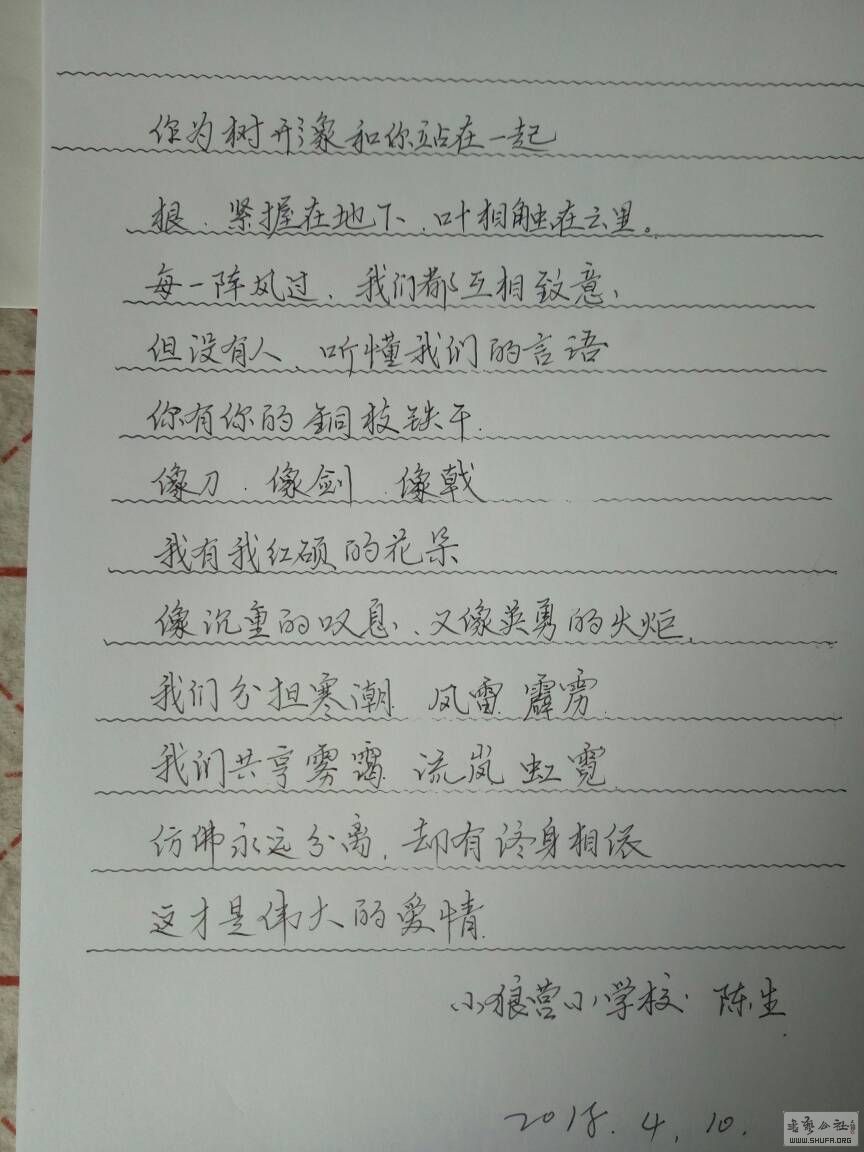 你为树形象和你站在一起
根、紧握在地下、叶相触在云里。
每一阵风过、我们都互相致意、
但没有人、听懂我们的言语
你有你的铜枝铁干.
像刀、像剑、像戟
我有我红硕的花朵
像沉重的叹息、又像英勇的火炬.
我们分担寒潮 风雷 霹雳.
我们共享雾霭 流岚 虹霓.
仿佛永远分离、却有终身相依
这才是伟大的爱情.
小狼营小学校· 陈生
2018.4.10.
书艺公社
WWW.SHUFA.ORG